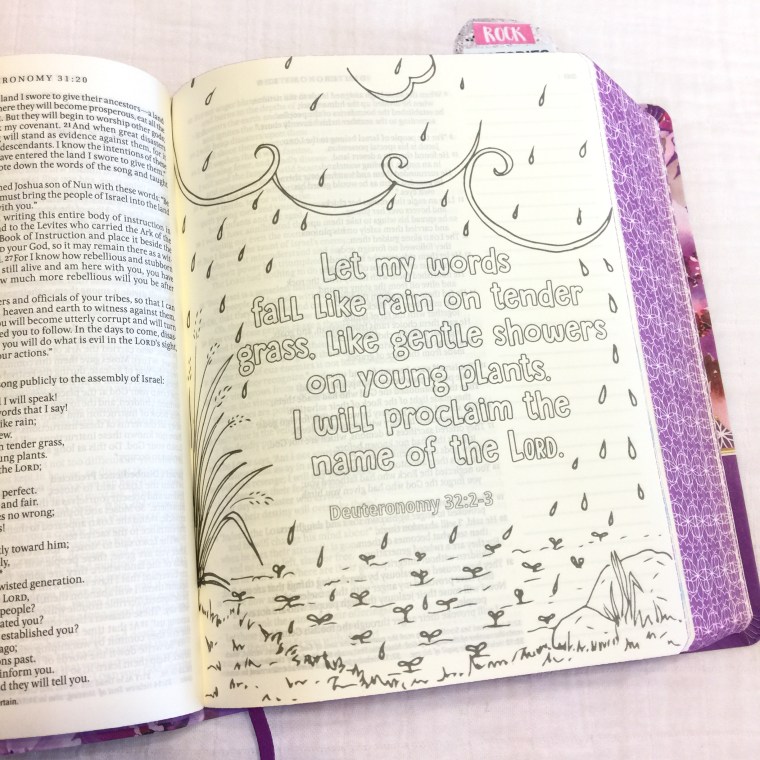 RONOMY 31:20
land I swore to give their ancestors—a land
here they will become prosperous, eat all the
. But they will begin to worship other gods;
my covenant. 21 And when great disasters
will stand as evidence against them, for it
descendants. I know the intentions of these
ave entered the land I swore to give them."
ote down the words of the song and taught
ned Joshua son of Nun with these words: "Be
must bring the people of Israel into the land
ith you."
writing this entire body of instruction in
nd to the Levites who carried the Ark of the
Book of Instruction and place it beside the
o your God, so it may remain there as a wit-
. 27 For I know how rebellious and stubborn
still alive and am here with you, you have
w much more rebellious will you be after
ers and officials of your tribes, so that I can
heaven and earth to witness against them.
ou will become utterly corrupt and will turn
ed you to follow. In the days to come, disas-
you will do what is evil in the LORD's sight,
ur actions."
song publicly to the assembly of Israel:
I will speak!
words that I say!
ike rain;
ew.
n tender grass,
ung plants.
the LORD;
perfect.
and fair.
es no wrong;
s!
tly toward him;
ly,
wisted generation.
LORD,
people?
ated you?
established you?
ago;
ons past.
inform you.
d they will tell you.
rtain.
ROCK
Let my words
fall like rain on tender
grass, like gentle showers
on young plants.
I will proclaim the
name of the LORD.
Deuteronomy 32:2-3